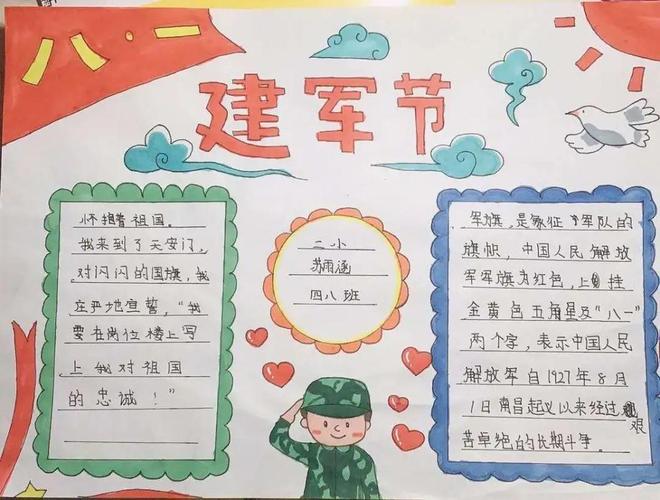 八·一
建军节
怀揣着祖国。
我来到了天安门,
对闪闪的国旗,我
庄严地宣誓,“我
要在岗位楼上写
上我对祖国
的忠诚！”
二小
苏雨涵
四八班
军旗,是象征军队的
旗帜,中国人民解放
军军旗为红色,上挂
金黄色五角星及“八一”
两个字,表示中国人民
解放军自1927年8月
1日南昌起义以来经过艰
苦卓绝的长期斗争。